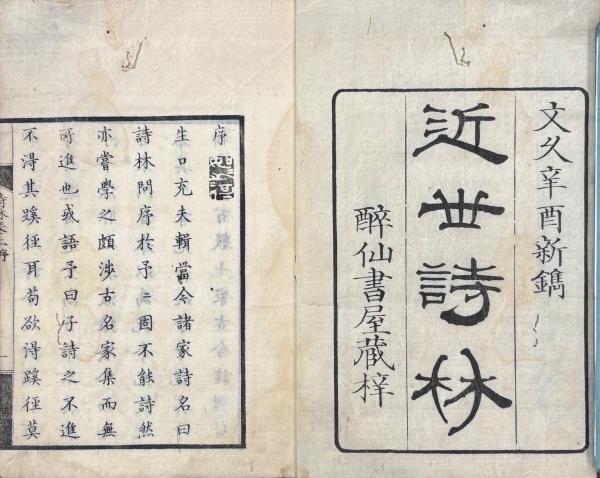 文久辛酉新鐫
近世詩林
醉仙書屋蔵梓
序
生口充夫輯當今諸家詩名曰
詩林問序於予〻固不能詩然
亦嘗學之頗渉古名家集而無
所進也或語予曰子詩之不進
不得其蹊徑耳苟欲得蹊徑莫